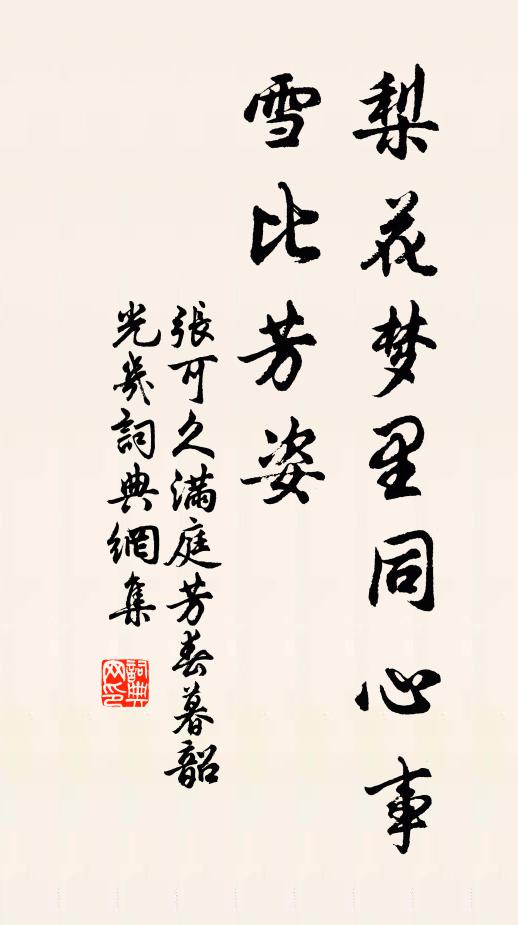 梨花梦里同心事
雪比芳姿
張可久满庭芳春暮韶
光幾詞典網集
詞典
网印